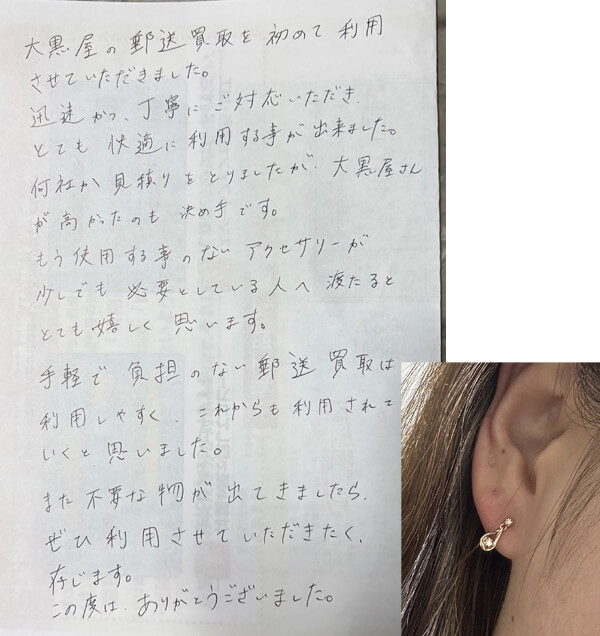 大黒屋の郵送買取を初めて利用
させていただきました。
迅速かつ、丁寧にご対応いただき、
とても快適に利用する事が出来ました。
何社か見積りをとりましたが、大黒屋さん
が高かったのも決め手です。
もう使用する事のないアクセサリーが
少しでも必要としている人へ渡たると
とても嬉しく思います。
手軽で負担のない郵送買取は
利用しやすく、これからも利用されて
いくと思いました。
また不要な物が出てきましたら、
ぜひ利用させていただきたく、
存じます。
この度は、ありがとうございました。